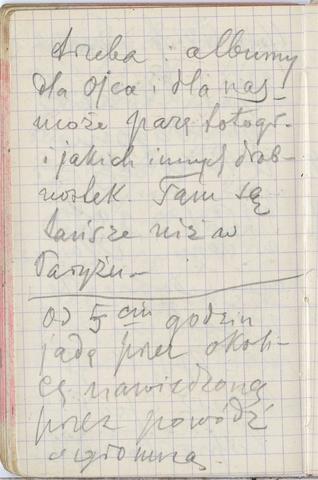 trzeba i albumy
dla Ojca i dla nas –
może parę fotogr.
i jakich innych drob-
nostek. Tam są
tańsze niż w
Paryżu –
Od 5ciu godzin
jadę przez okoli-
cę nawiedzoną
przez powódź
ogromną.